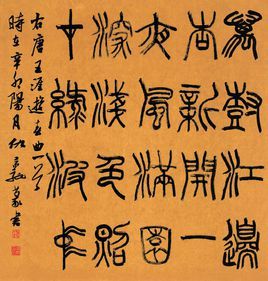 萬樹江邊
杏新開一
夜風滿園
深淺色照
在綠波中
右唐王涯遊春曲一首
時在辛卯陽月篆書